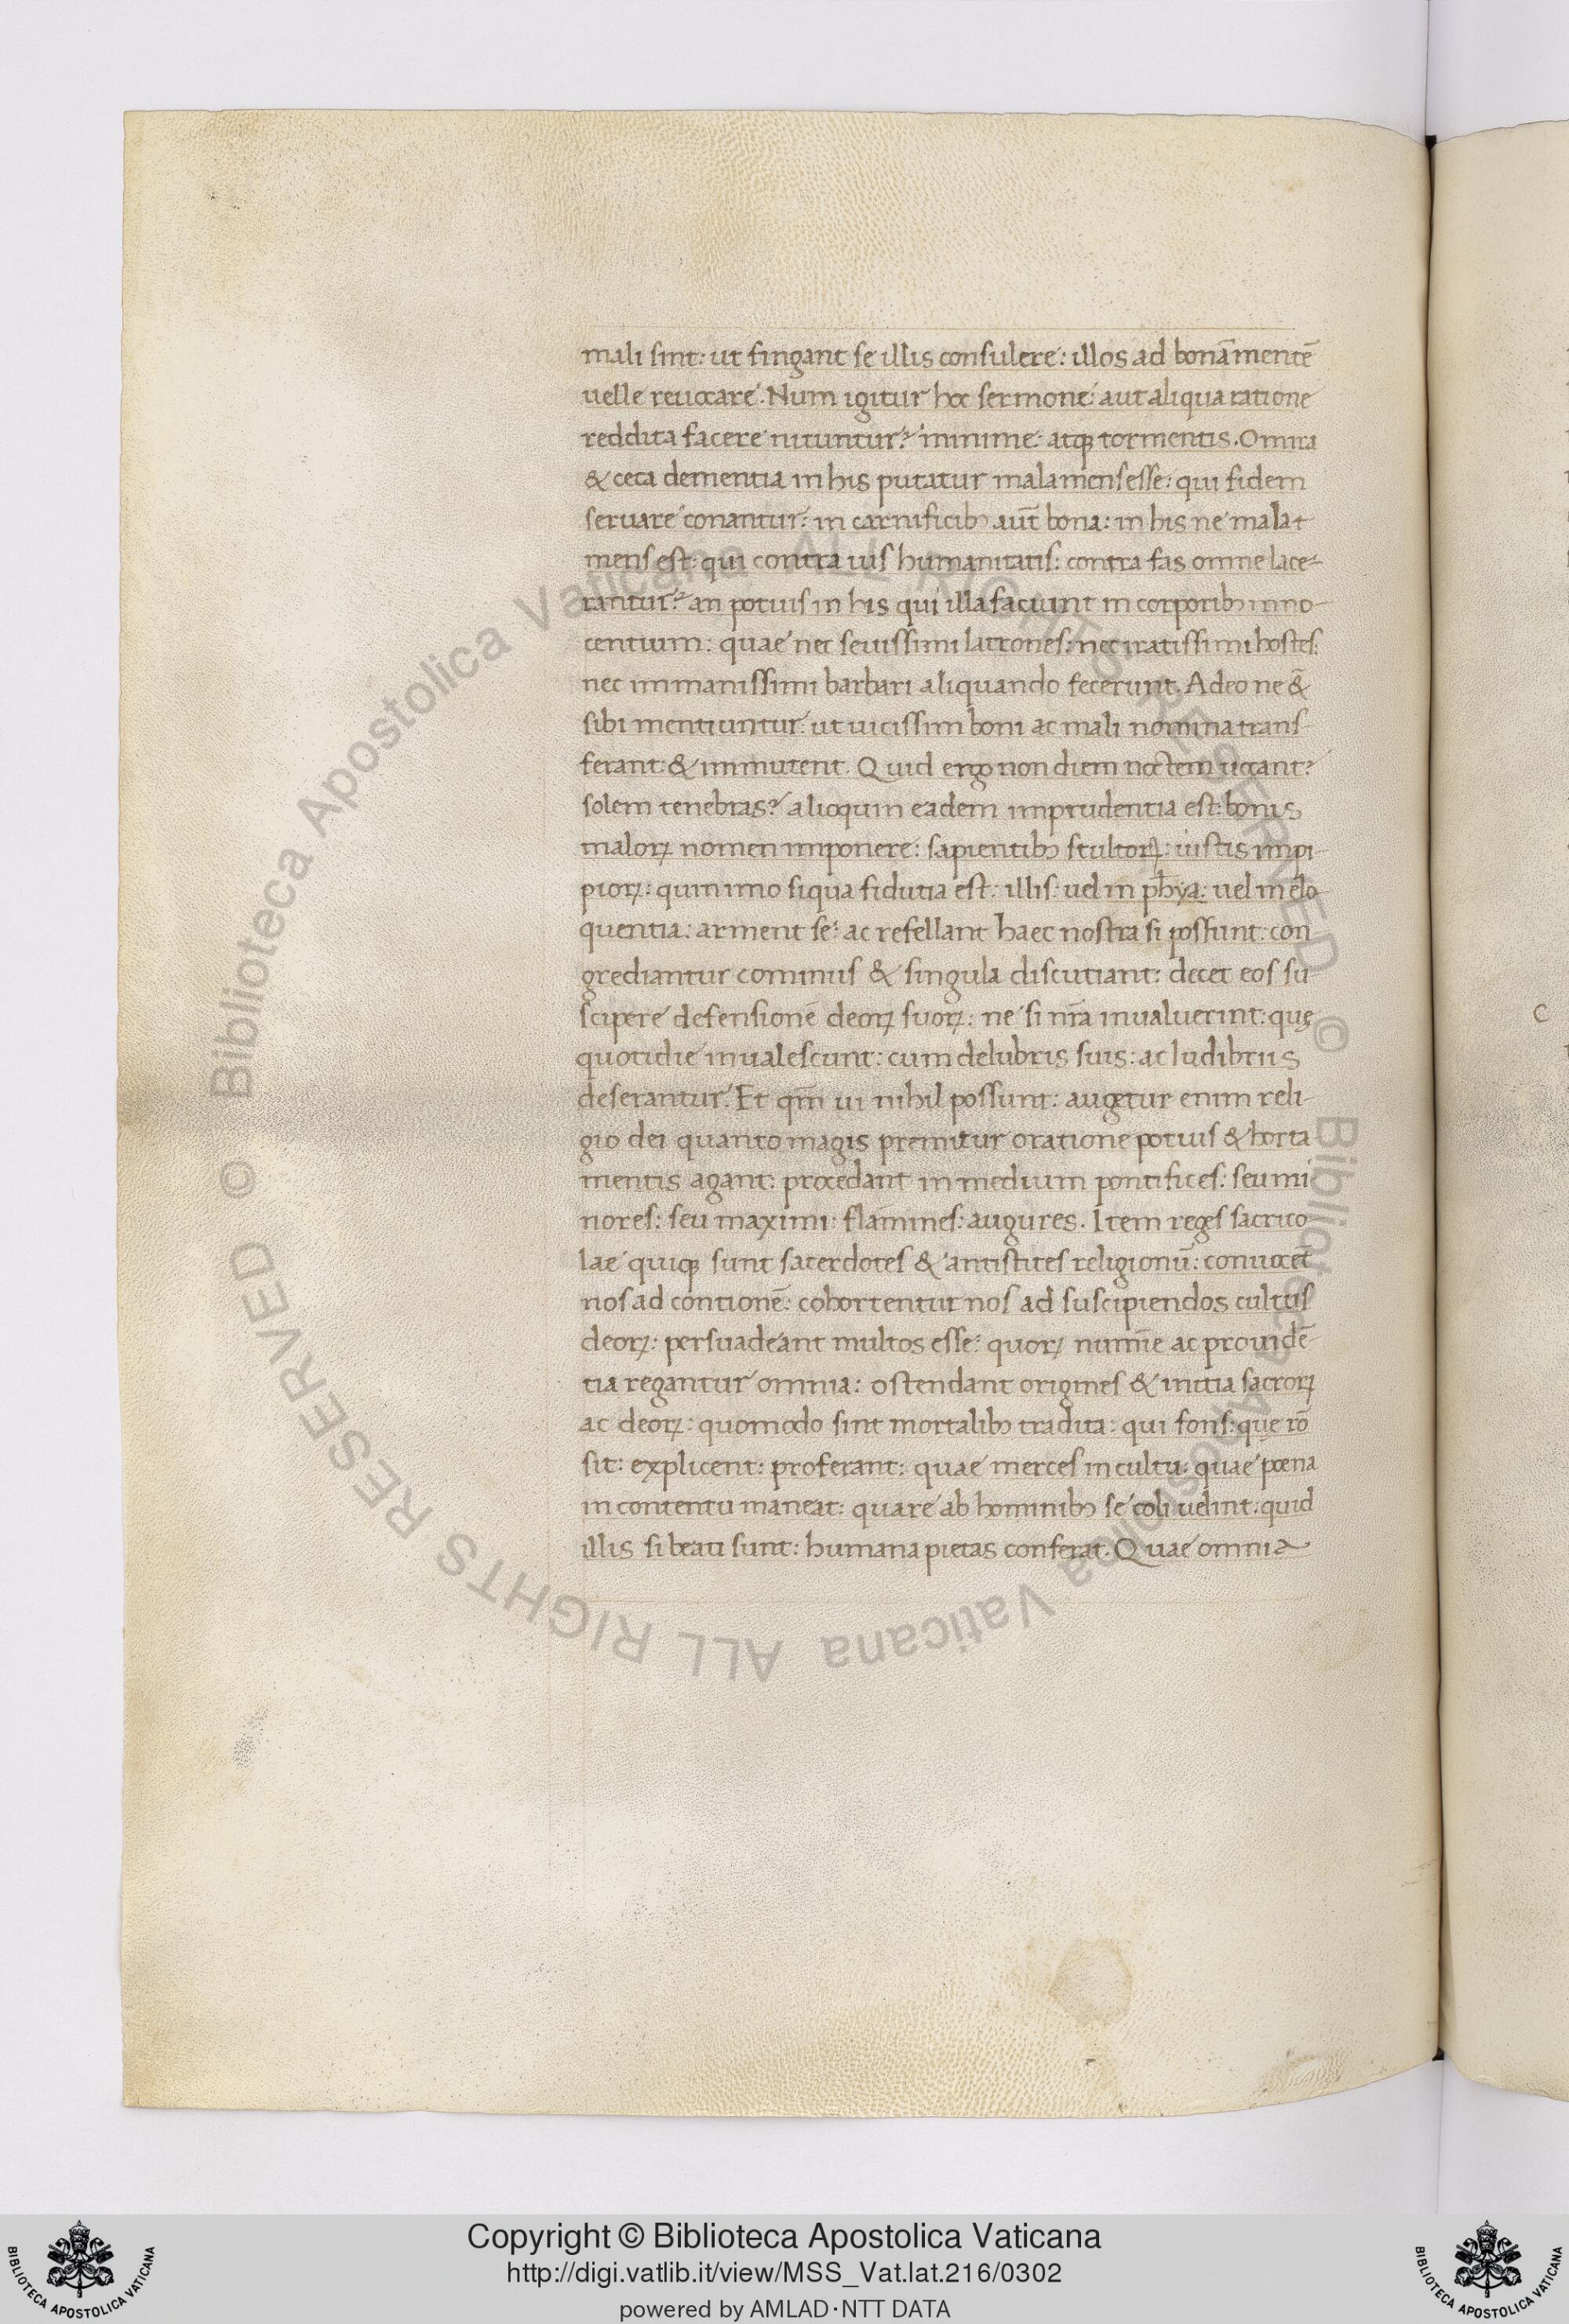 mali sint: ut fingant se illis consulere: illos ad bonā mentē
uelle reuocare. Num igitur hoc sermone: aut aliqua ratione
reddita facere nituntur? minime: atq; tormentis. O mira
& ceca dementia in his putatur mala mens esse: qui fidem
seruare conantur: in carnificib; aut̄ bona: in his ne mala
mens est: qui contra ius humanitatis: contra fas omne lace-
rantur? an potius in his qui illa faciunt in corporib; inno-
centium: quae nec seuissimi latrones: nec iratissimi hostes:
nec immanissimi barbari aliquando fecerunt. Adeo ne &̄
sibi mentiuntur: ut uicissim boni ac mali nomina trans-
ferant: & immutent. Quid ergo non diem noctem uocant?
solem tenebras? alioquin eadem imprudentia est: bonis
maloꝝ nomen imponere: sapientib; stultoꝝ: iustis impi-
pioꝝ: quin imo siqua fidutia est: illis: uel in ph̄ya: uel in elo-
quentia: arment se: ac refellant haec nostra si possunt: con
grediantur cominus & singula discutiant: decet eos su
scipere defensionē deoꝝ suoꝝ: ne si nr̄a inualuerint: quę
quotidie inualescunt: cum delubris suis: ac ludibriis
deserantur. Et qm̄ ui nihil possunt: augetur enim reli-
gio dei quanto magis premitur oratione potius & horta
mentis agant: procedant in medium pontifices: seu mi
nores: seu maximi: flamines: augures. Item reges sacrico
lae quiq; sunt sacerdotes & antistites religionū: conuocet
nos ad contionē: cohortentur nos ad suscipiendos cultus
deoꝝ: persuadeant multos esse: quoꝝ numīe ac prouidē-
tia regantur omnia: ostendant origines & initia sacroꝝ
ac deoꝝ: quomodo sint mortalib; tradita: qui fons: que rō
sit: explicent: proferant: quae merces in cultu: quae poena
in contentu maneat: quare ab hominib; se coli uelint: quid
illis si beati sunt: humana pietas conferat. Quae omnia
c
© Biblioteca Apostolica Vaticana ALL RIGHTS RESERVED © Biblioteca Apostolica Vaticana ALL RIGHTS RESERVED
BIBLIOTECA APOSTOLICA VATICANA
Copyright © Biblioteca Apostolica Vaticana
http://digi.vatlib.it/view/MSS_Vat.lat.216/0302
powered by AMLAD·NTT DATA
BIBLIOTECA APOSTOLICA VATICANA